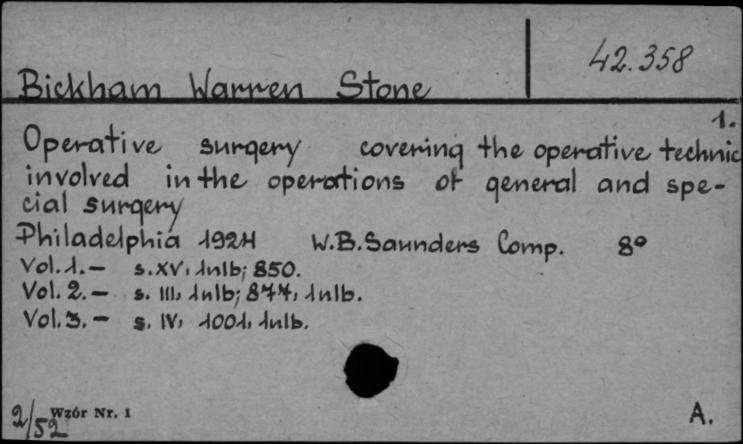 42.358
Bickham Warren Stone
1.
Operative surgery covering the operative technic
involved in the operations of general and spe-
cial surgery
Philadelphia 1924 W.B. Saunders Comp. 8°
Vol. 1. – s. XV, 1nlb; 850.
Vol. 2. – s. III, 1nlb; 877, 1nlb.
Vol. 3. – s. IV, 1001, 1nlb.
2/52 Wzór Nr. 1 A.